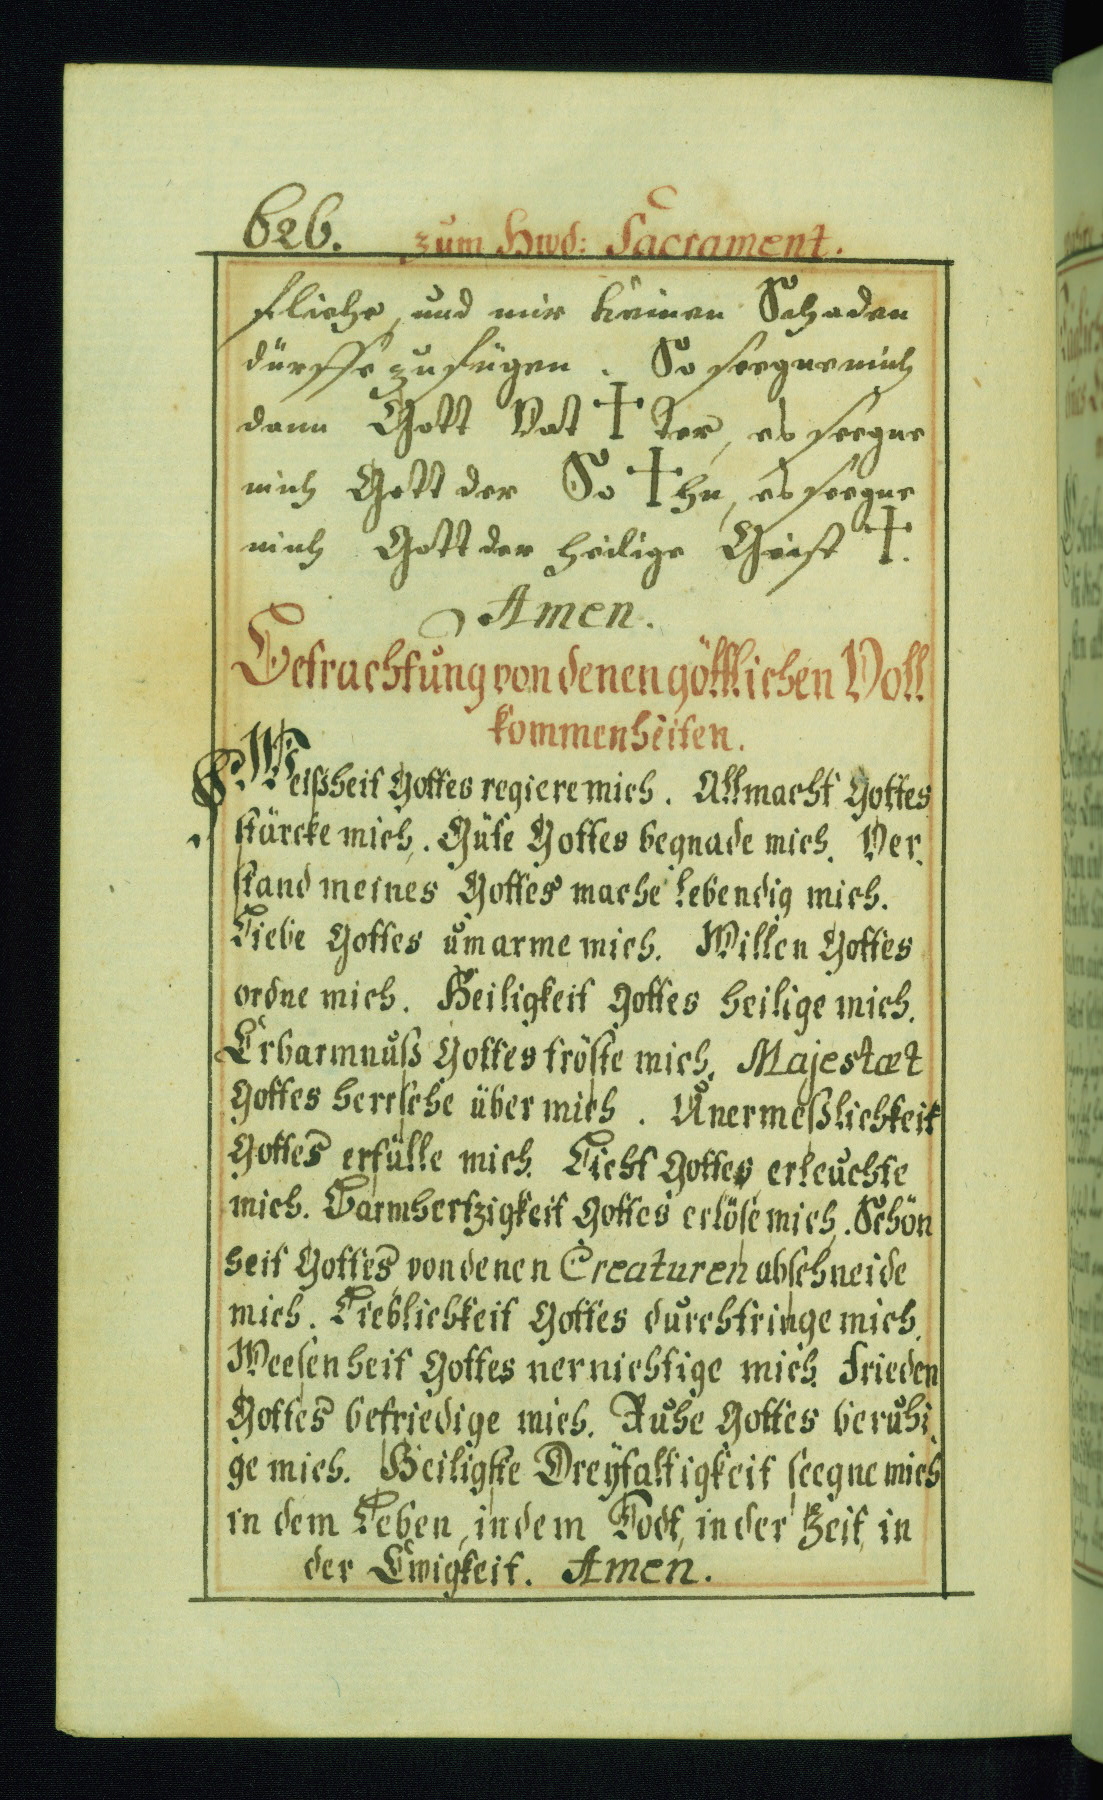 626. zum Hwd: Sacrament.
fliehe, und mir keinen Schaden
dürffe zufügen. So seegne mich
dann Gott Vat ✝ ter, es seegne
mich Gott der So ✝ hn, es seegne
mich Gott der heilige Geist ✝.
Amen.
Betrachtung von denen göttlichen Voll
kommenheiten.
Weißheit Gottes regiere mich. Allmacht Gottes
stärcke mich. Güte Gottes begnade mich. Ver,
stand meines Gottes mache lebendig mich.
Liebe Gottes umarme mich. Willen Gottes
ordne mich. Heiligkeit Gottes heilige mich.
Erbarmnuß Gottes tröste mich. Majestæt
Gottes herrsche über mich. Unermeßlichkeit
Gottes erfülle mich. Licht Gottes erleuchte
mich. Barmhertzigkeit Gottes erlöse mich. Schön
heit Gottes von denen Creaturen abschneide
mich. Lieblichkeit Gottes durchtringe mich.
Weesenheit Gottes vernichtige mich. Frieden
Gottes befriedige mich. Ruhe Gottes beruhi,
ge mich. Heiligste Dreyfaltigkeit seegne mich
in dem Leben, in dem Todt, in der Zeit, in
der Ewigkeit. Amen.